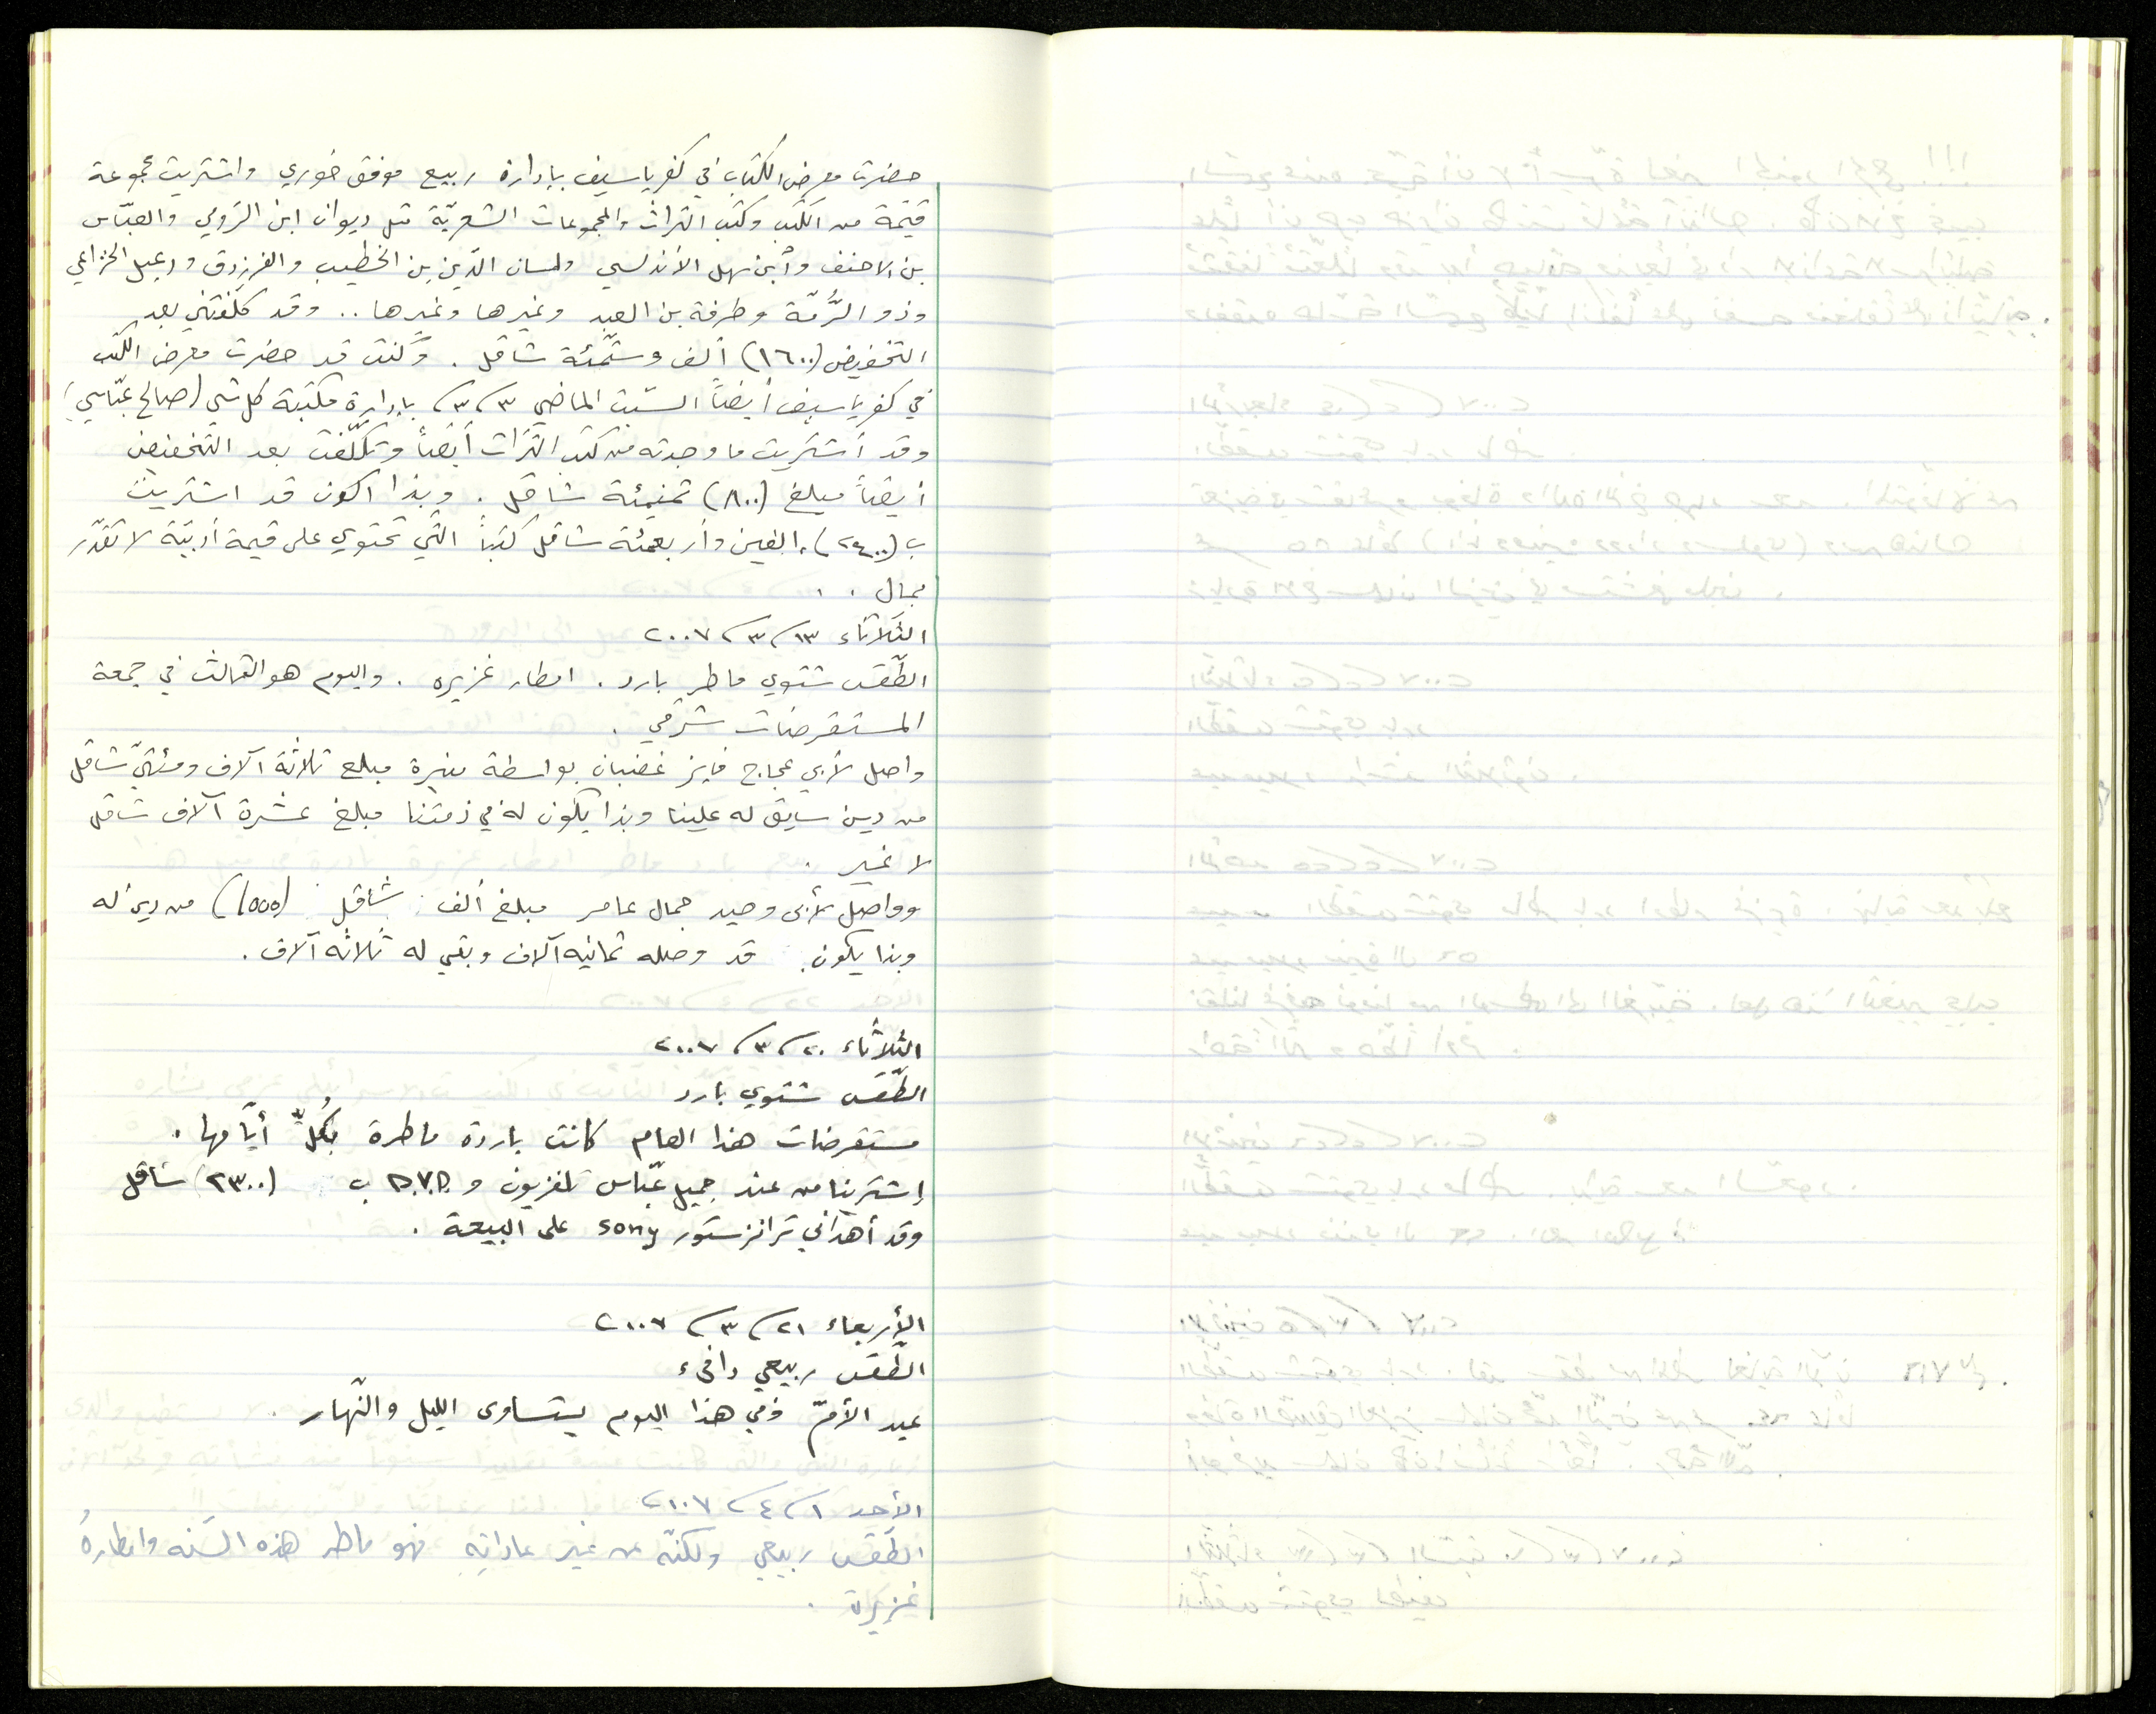 حضرت معرض الكتاب في كفرياسيف بإدارة ربيع موفق خوري واشتريت مجموعة
قيّمة من الكتب وكتب التراث والمجموعات الشعريّة مثل ديوان ابن الرّومي والعبّاس
بن الاحنف وأبن سهل الأندلسي ولسان الدّين بن الخطيب والفرزدق ودعبل الخزاعي
وذو الرُّمّة وطرفة بن العبد وغيرها وغيرها .. وقد كلّفتني بعد
التخفيض (١٦٠٠) ألف وستّمئة شاقل . وكنت قد حضرت معرض الكتب
في كفرياسيف أيضاً السّبت الماضي ٣/٣ بإدارة مكتبة كل شي (صالح عبّاسي)
وقد أشتريت ما وجدته من كتب التراث أيضاً وتكلّفت بعد التخفيض
أيضاً مبلغ (٨٠٠) ثمنمئة شاقل . وبذا اكون قد اشتريت
ب (٢٤٠٠) ألفين وأربعمئة شاقل كتباً التي تحتوي على قيمة أدبيّة لا تقدّر
بمال .
الثلاثاء ١٣/٣/٢٠٠٧
الطّقس شتوي ماطر بارد . امطار غزيره . واليوم هو الثالث في جمعة
المستقرضات شرقي .
واصل لأبي عجاج فايز غضبان بواسطة منيرة مبلغ ثلاثة آلاف ومئتيّ شاقل
من دين سابق له علينا وبذا يكون له في ذمتنا مبلغ عشرة آلاف شاقل
لا غير .
وواصل لأبي وحيد جمال عامر مبلغ ألف شاقل (1000) من دين له
وبذا يكون قد وصله ثمانيه آلاف وبقي له ثلاثه آلاف .
الثلاثاء ٢٠/٣/٢٠٠٧
الطّقس شتوي بارد
مستقرضات هذا العام كانت باردة ماطرة بكُلّ أيّامها .
إشترينا من عند جميل عبّاس تلفزيون و D.V.D ب (٢٣٠٠) شاقل
وقد أهداني ترانزستور sony على البيعة .
الأربعاء ٢١/٣/٢٠٠٧
الطّقس ربيعي دافىء
عيد الأمّ وفي هذا اليوم يتساوى الليل والنّهار .
الأحد ١/٤/٢٠٠٧
الطّقس ربيعي ولكنّه من غير عاداتِهِ فهو ماطر هذه السّنه وامطارهُ
غزيرة .